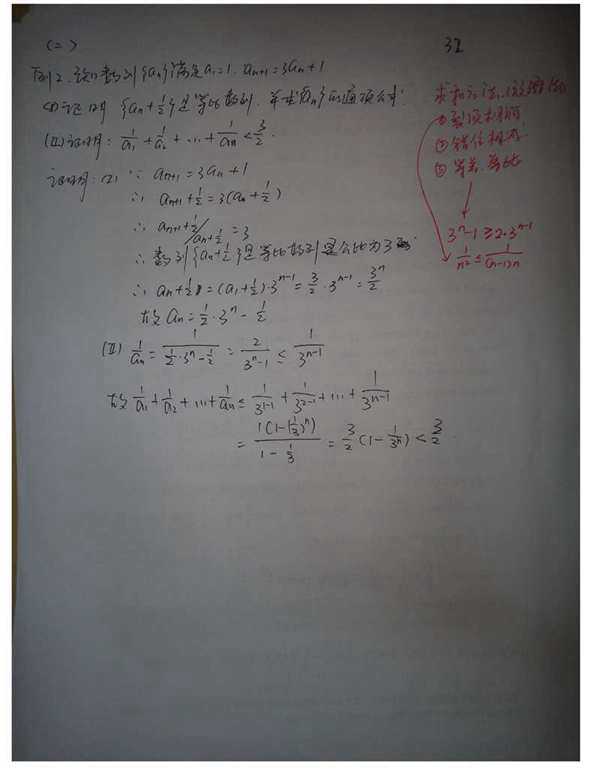 (二)
32
例2. 设数列{an}满足a₁=1. aₙ₊₁=3aₙ+1
(I)证明 {aₙ+1/2}是等比数列. 并求{aₙ}的通项公式.
(II)证明: 1/a₁+1/a₂+…+1/aₙ<3/2.
证明: (I) ∵ aₙ₊₁=3aₙ+1
∴ aₙ₊₁+1/2=3(aₙ+1/2)
∴ (aₙ₊₁+1/2)/(aₙ+1/2)=3
∴ 数列{aₙ+1/2}是等比数列且公比为3
∴ aₙ+1/2=(a₁+1/2)·3ⁿ⁻¹=3/2·3ⁿ⁻¹=3ⁿ/2
故 aₙ=1/2·3ⁿ-1/2
(II) 1/aₙ=1/(1/2·3ⁿ-1/2)=2/(3ⁿ-1)≤1/3ⁿ⁻¹
故 1/a₁+1/a₂+…+1/aₙ≤1/3¹⁻¹+1/3²⁻¹+…+1/3ⁿ⁻¹
=1(1-1/3ⁿ)/(1-1/3)=3/2(1-1/3ⁿ)<3/2.
求和方法
①裂项相消
②错位相减
③等差.等比
3ⁿ-1≥2·3ⁿ⁻¹
1/n²≤1/(n-1)n